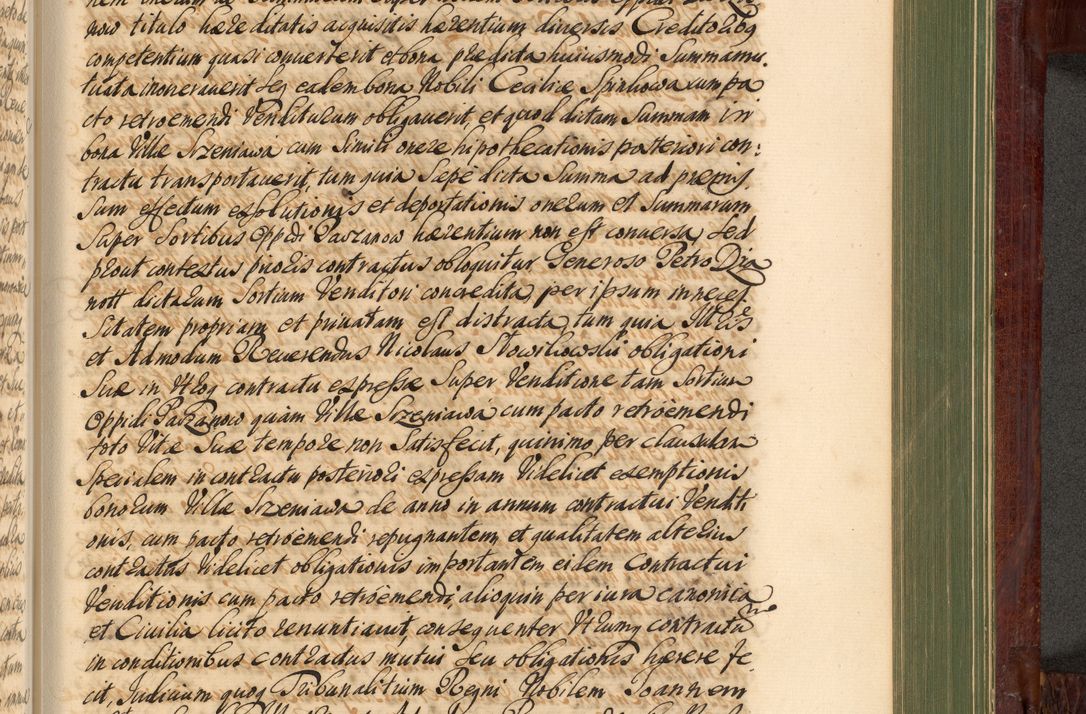 now titulo hæreditatis acquisitis hærentium diversis Creditorbg
competentium quasi converterit et bona prædicta huiusmodi Summa mu
tuata inoneraverit seu eadem bona Nobili Ceciliæ Spinkowa cum pa
cto retroemendi Venditurum obligaverit, et quod dictam Summam in
bona Villæ Srzeniawa cum simili onere hipothecationis posteriori con:
tractu transportaverit, tum quia Sæpe dicta Summa ad præmis
sum effectum exsolutionis et deportationis onerum et Summarum
Super Sortibus Oppidi Paczanow hærentium non est conversa, Sed
prout contextus prioris contractus obloquitur Generoso Petro Dra
nott dictarum Sortium Venditori concredita, per ipsum in neces
sitatem propriam et privatam est distracta, tum quia Illris
et Admodum Reverendus Nicolaus Slowikowski obligationi
Suæ in Utroq contractu expressæ Super Venditione tam Sortium
Oppidi Paczanow quàm Villæ Srzeniawa cum pacto retroemendi
toto Vitæ Suæ tempore non Satisfecit, quinimo per clausulam
Specialem in contractu posteriori expressam Videlicet exemptionis
bonorum Villæ Srzeniawa de anno in annum contractui Venditi
onis, cum pacto retroemendi repugnantem et qualitatem alterius
contractus Videlicet obligationis importantem eidem Contractui
Venditionis cum pacto retroemendi, alioquin per iura canonica
et Civilia licito renuntiavit, consequenter Utrumq contractum
in conditionibus contractus mutui seu obligationis hærere fe
cit, Judicium quoq Tribunalitium Regni Nobilem Joannem